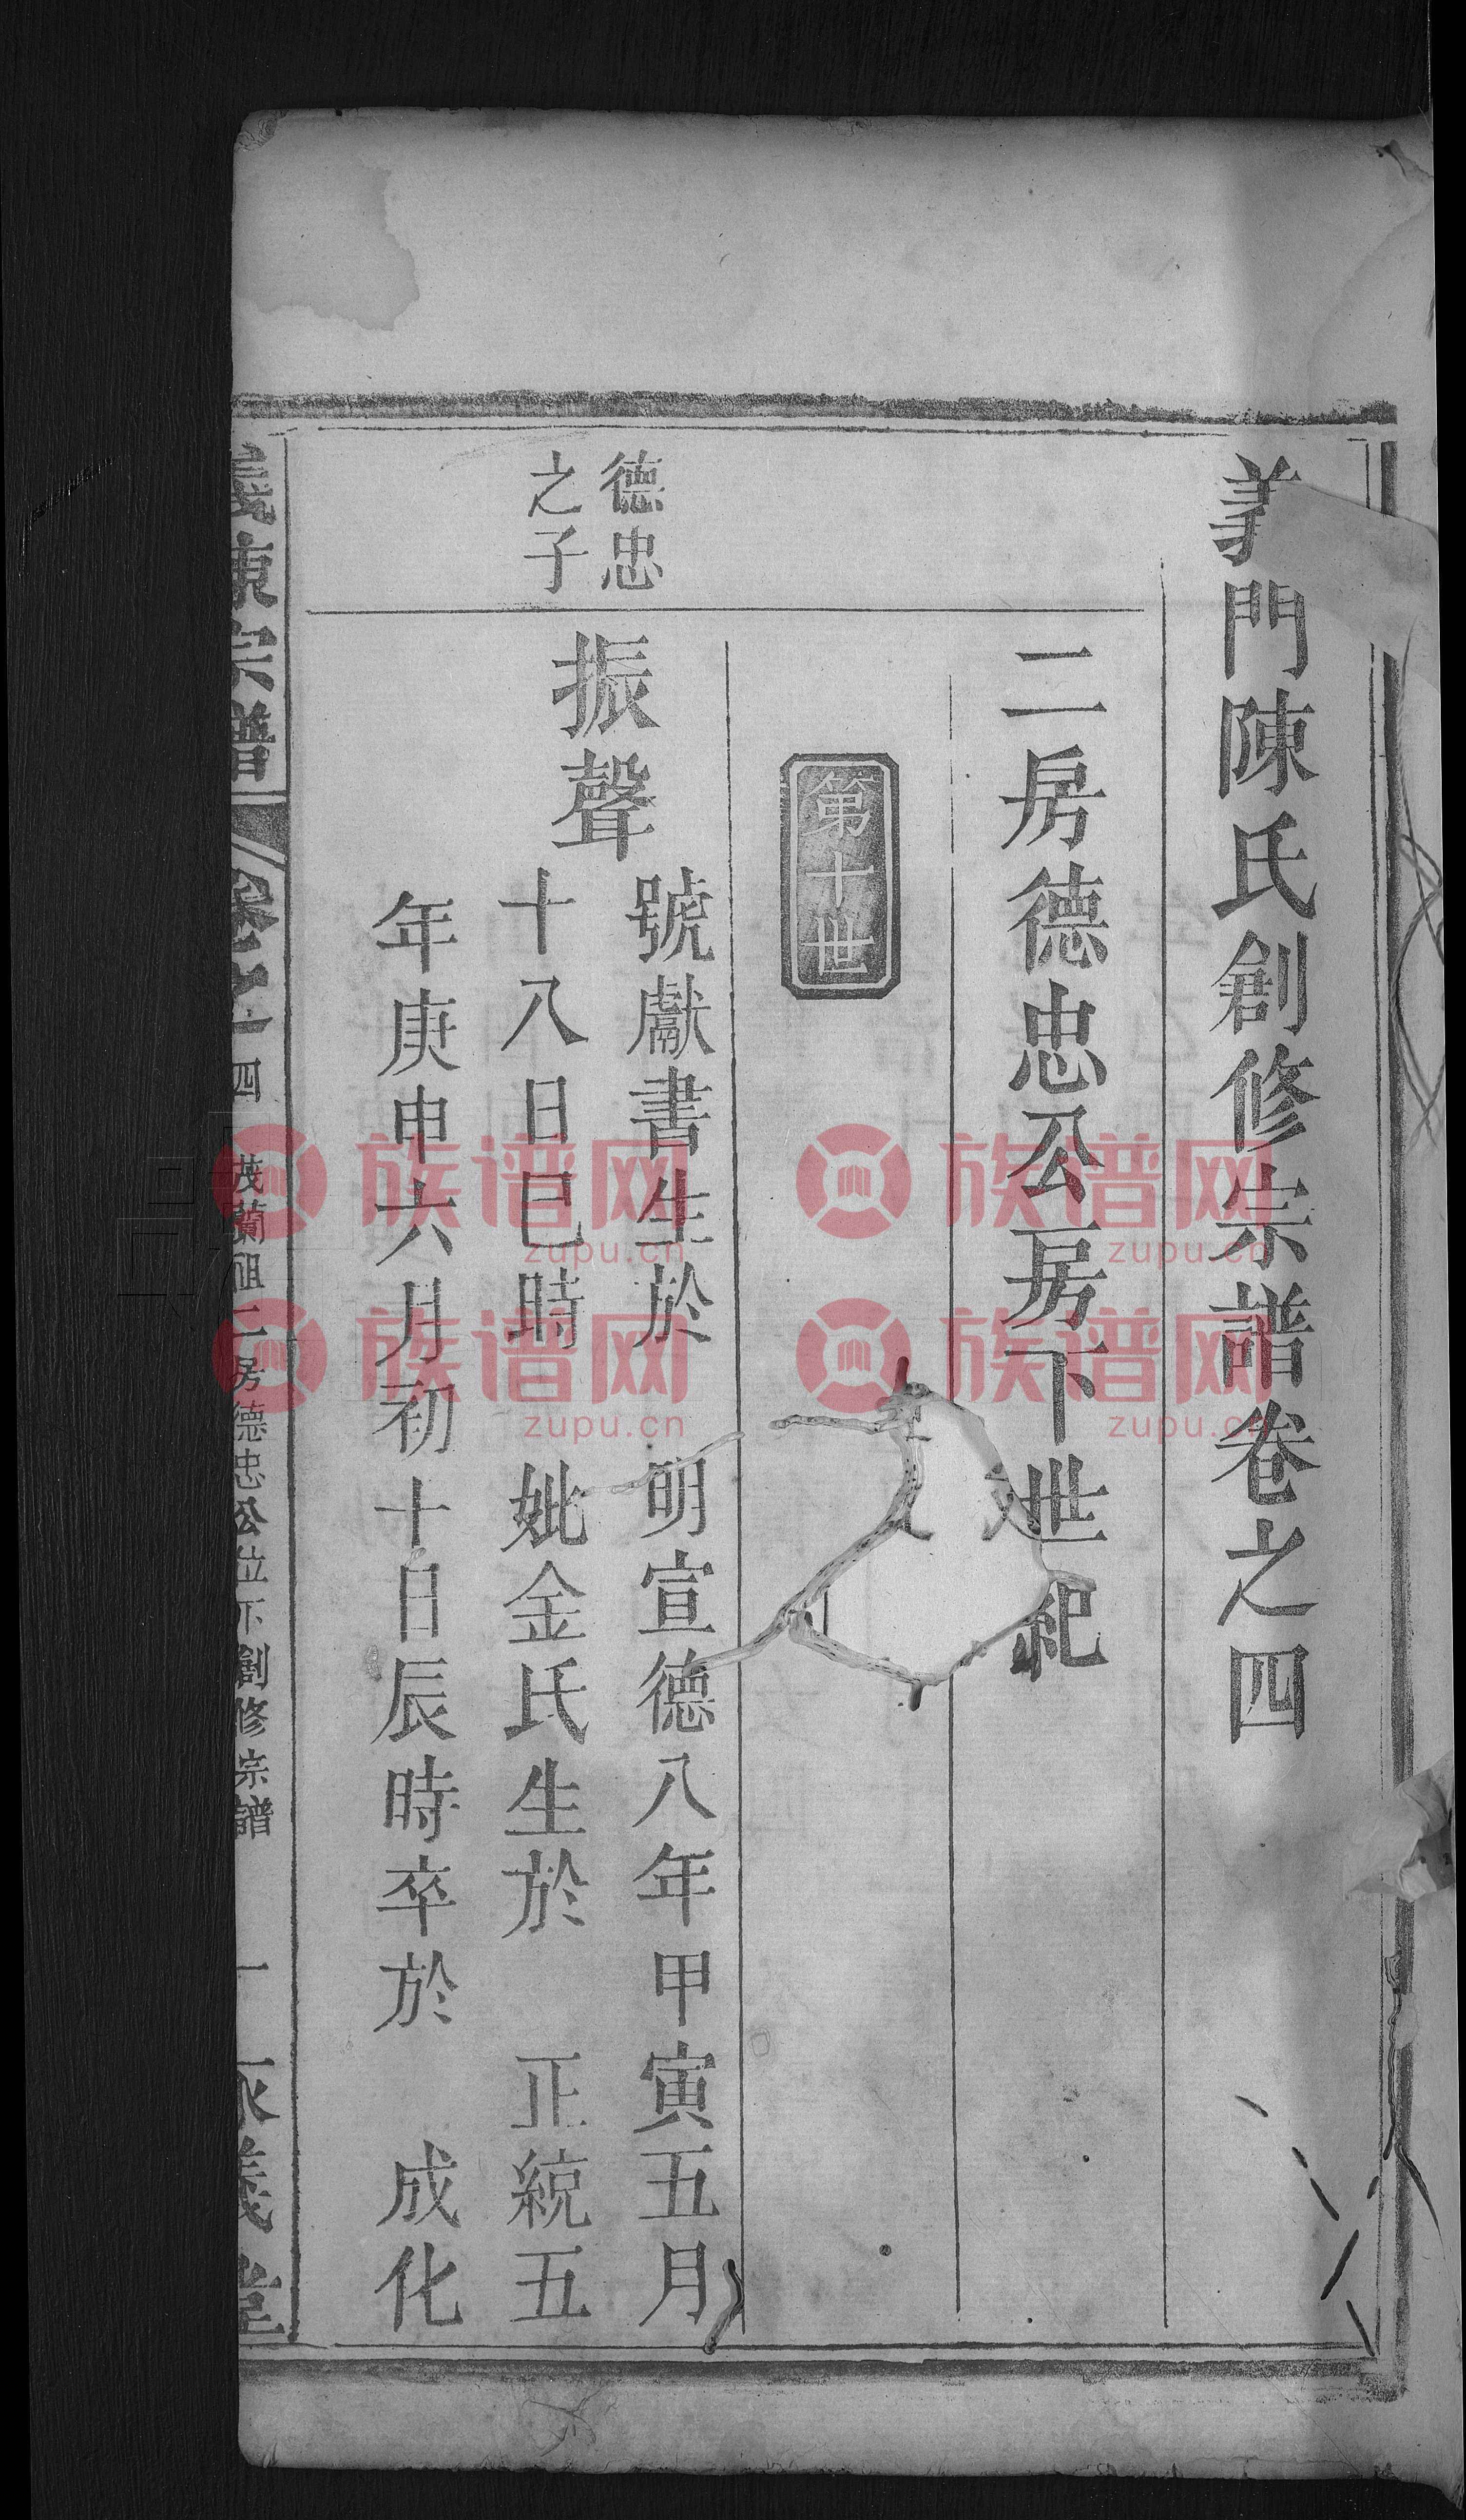 義門陳氏創修宗譜卷之四
二房德忠公房下世紀
第十世
德忠
之子
振聲
號獻書生於 明宣德八年甲寅五月
十八日巳時 妣金氏生於 正統五
年庚申六月初十日辰時卒於 成化
義陳宗譜 卷之四 茂蘭祖二房德忠公位下創修宗譜 一 義堂
族谱网 zupu.cn
族谱网 zupu.cn
族谱网 zupu.cn
族谱网 zupu.cn